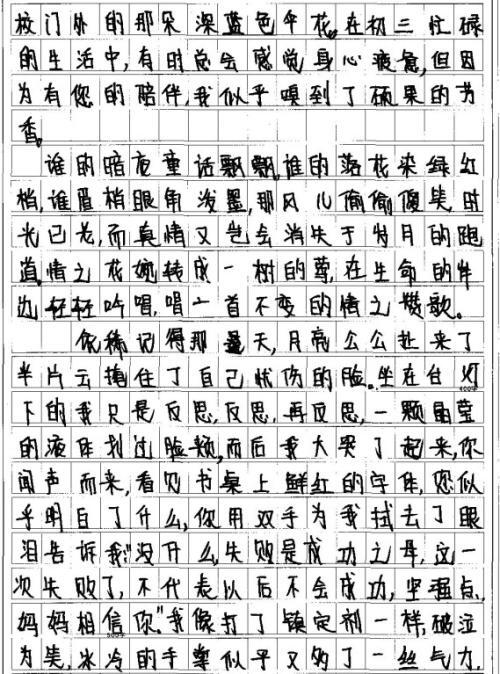 校门外的那朵深蓝色伞花。在初三忙碌
的生活中,有时总会感觉身心疲惫,但因
为有您的陪伴,我似乎嗅到了硕果的芳
香。
谁的暗夜童话飘飘,谁的落花染绿红
梢,谁眉梢眼角泼墨,那风儿偷偷傻笑,时
光已老,而真情又岂会消失于岁月的跑
道。情之花婉转成一树的莺,在生命的伴
边轻轻吟唱,唱一首不变的情之赞歌。
依稀记得那是天,月亮公公赴来了
半片云掩住了自己忧伤的脸。坐在台灯
下的我只是反思,反思,再反思,一颗晶莹
的液体划过脸颊,而后我大哭了起来,你
闻声而来,看见书桌上鲜红的字体,您似
乎明白了什么,你用双手为我拭去了眼
泪告诉我:"没什么,失败是成功之母,这一
次失败了,不代表以后不会成功,坚强点,
妈妈相信你."我像打了镇定剂一样,破泣
为笑,冰冷的手掌似乎又多了一丝气力.